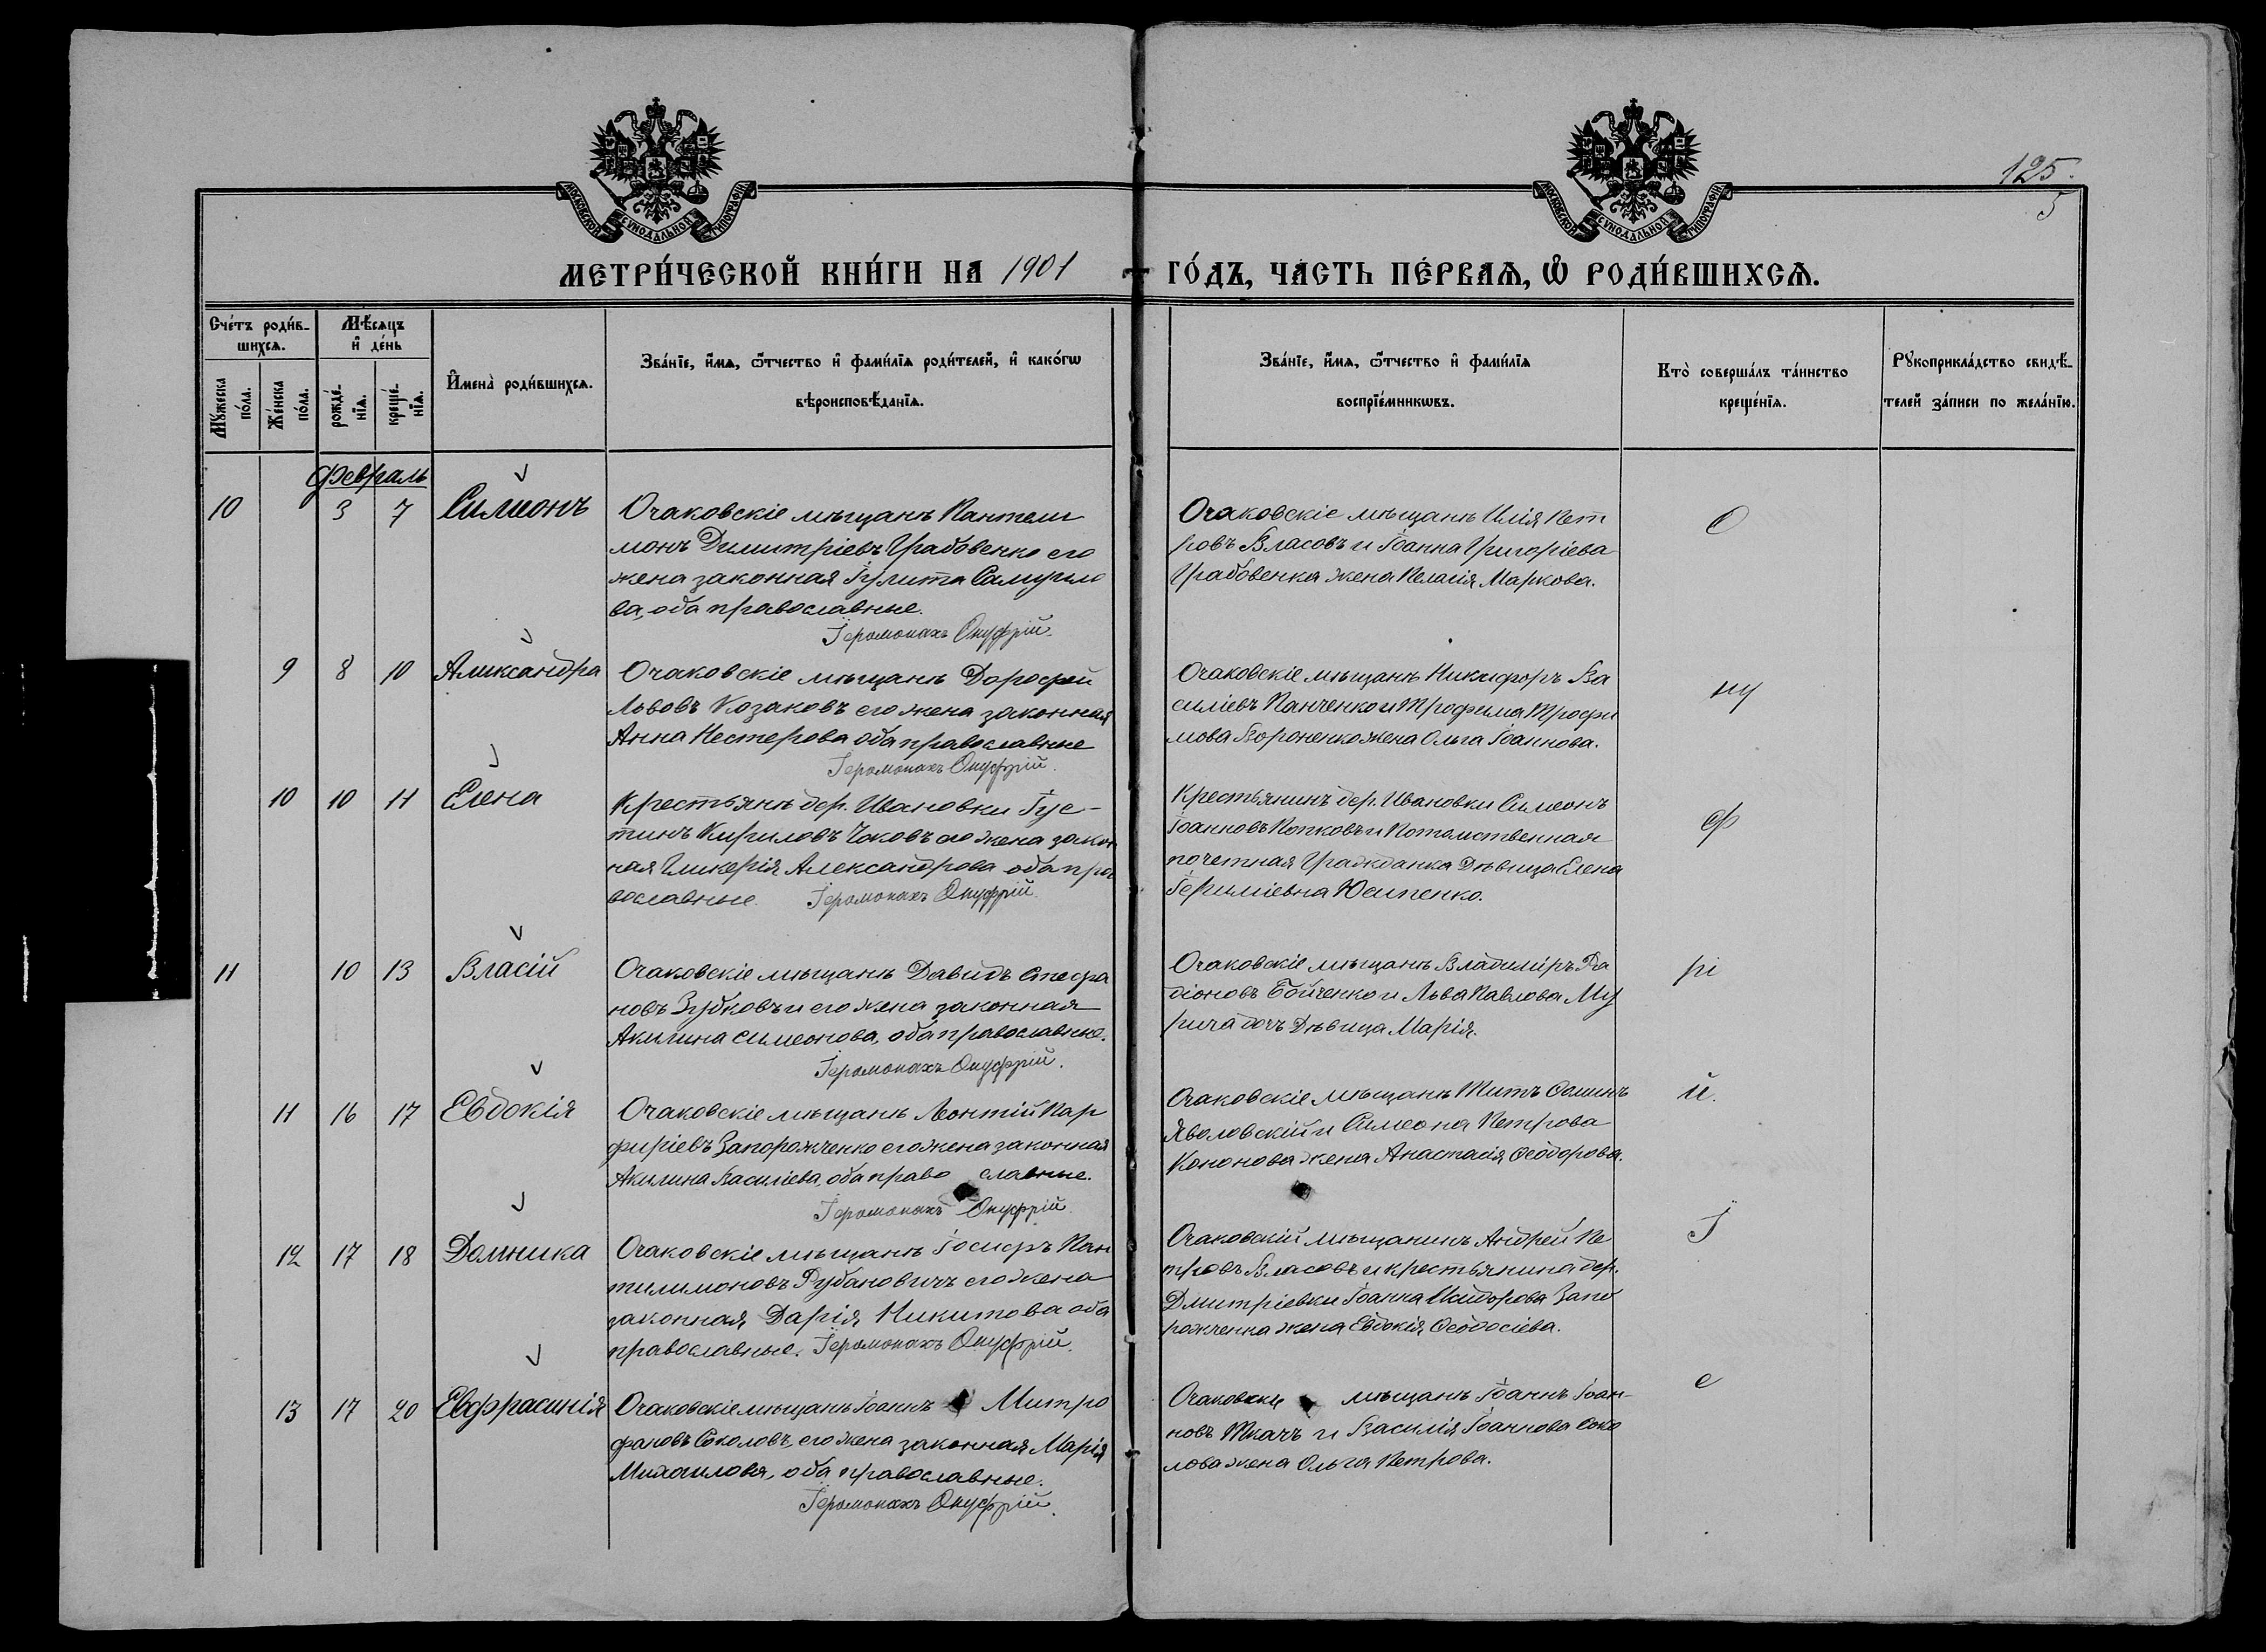 125.
5
МОСКОВСКОЙ СѴНОДАЛЬНОЙ ТИПОГРАФІИ
МОСКОВСКОЙ СѴНОДАЛЬНОЙ ТИПОГРАФІИ
МЕТРИ́ЧЕСКОЙ КНИ́ГИ НА 1901 ГО́ДЪ, ЧА́СТЬ ПЕ́РВАѦ, Ѡ҆ РОДИ́ВШИХСѦ.
Сче́тъ роди́в-
шихсѧ.
Мѣ́сѧцъ
и҆ де́нь
Мꙋ́жеска
по́ла.
Же́нска
по́ла.
рожде́-
нїѧ.
креще́-
нїѧ.
И҆мена̀ роди́вшихсѧ.
Зва́нїе, и҆́мѧ, ѻ҆́тчество и҆ фами́лїѧ роди́телей, и҆ како́гѡ
вѣроисповѣ́данїѧ.
Зва́нїе, и҆́мѧ, ѻ҆́тчество и҆ фами́лїѧ
воспрїе́мникѡвъ.
Кто̀ соверша́лъ та́инство
креще́нїѧ.
Рꙋкоприкла́дство свидѣ́-
телей за́писи по жела́нїю.
Февраль
10 3 7 Симеонъ
Очаковскіе мѣщанъ Пантели
монъ Димитріевъ Грабовенко его
жена законная Іулита Самуило
ва, оба православные.
Іеромонахъ Онуфрій.
Очаковскіе мѣщанъ Илія Пет
ровъ Власовъ и Іоанна Григоріева
Грабовенка жена Пелагія Маркова.
О
9 8 10 Александра
Очаковскіе мѣщанъ Дорофей
Львовъ Козаковъ его жена законная
Анна Нестерова оба православные
Іеромонахъ Онуфрій.
Очаковскіе мѣщанъ Никифоръ Ва
силіевъ Панченко и Трофима Трофи
мова Вороненко жена Ольга Іоаннова.
ну
10 10 11 Елена
Крестьянъ дер. Ивановки Іус-
тинъ Кириловъ его жена закон
ная Гликерія Александрова оба пра
вославные. Іеромонахъ Онуфрій.
Крестьянинъ дер. Ивановки Симеонъ
Іоанновъ Попковъ и Потомственная
почетная Гражданка Дѣвица Елена
Іереміевна Юсипенко.
ф
11 10 13 Власій
Очаковскіе мѣщанъ Давидъ Стефа
новъ Зубковъ и его жена законная
Акилина Симеонова, оба православные.
Іеромонахъ Онуфрій.
Очаковскіе мѣщанъ Владиміръ Ра
діоновъ Бойченко и Льва Павлова Му
рича дочь Дѣвица Марія.
рі
11 16 17 Евдокія
Очаковскіе мѣщанъ Леонтій Пор
фиріевъ Запорожченко его жена законная
Акилина Василіева, оба право славные.
Іеромонахъ Онуфрій.
Очаковскіе мѣщанъ Титъ Ѳоминъ
Яволовскій и Симеона Петрова
Кононова жена Анастасія Ѳеодорова.
й.
12 17 18 Домника
Очаковскіе мѣщанъ Іосифъ Пан
тилимоновъ Рубановичъ его жена
законная Дарія Никитова оба
православные. Іеромонахъ Онуфрій.
Очаковскій мѣщанинъ Андрей Пе
тровъ Власовъ и крестьянина дер.
Дмитріевки Іоанна Исидорова Запо
рожченка жена Евдокія Ѳеодосіева.
І
13 17 20 Евфрасинія
Очаковскіе мѣщанъ Іоаннъ Митро
фановъ Соколовъ, его жена законная Марія
Михаилова, оба православные.
Іеромонахъ Онуфрій.
Очаковскіе мѣщанъ Іоаннъ Іоан-
новъ Ткачъ и Василія Іоаннова Соко
лова жена Ольга Петрова.
е